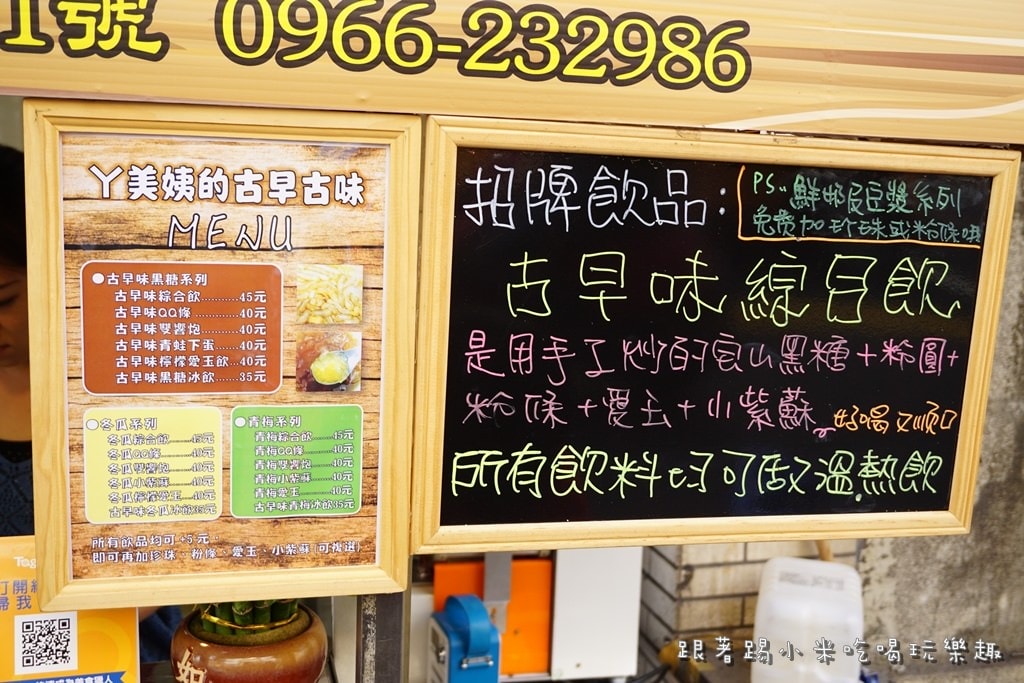 1號 0966-232986
丫美姨的古早古味
MENU
●古早味黑糖系列
古早味綜合飲...........45元
古早味QQ條.............40元
古早味雙響炮...........40元
古早味青蛙下蛋...40元
古早味檸檬愛玉飲..40元
古早味黑糖冰飲......35元
●冬瓜系列
冬瓜綜合飲........45元
冬瓜QQ條..........40元
冬瓜雙響炮........40元
冬瓜小紫蘇........40元
冬瓜檸檬愛玉....40元
古早味冬瓜冰飲35元
●青梅系列
青梅綜合飲..........45元
青梅QQ條............40元
青梅雙響炮..........40元
青梅小紫蘇..........40元
青梅愛玉.............40元
古早味青梅冰飲35元
所有飲品均可+5元，
即可再加珍珠、粉條、愛玉、小紫蘇(可複選)
招牌飲品：
PS..鮮奶及豆漿系列
免費加珍珠或粉條哦
古早味綜合飲
是用手工炒的岡山黑糖+粉圓+
粉條+愛玉+小紫蘇。好喝又順口
所有飲料均可做溫.熱飲
跟著踢小米吃喝玩樂趣